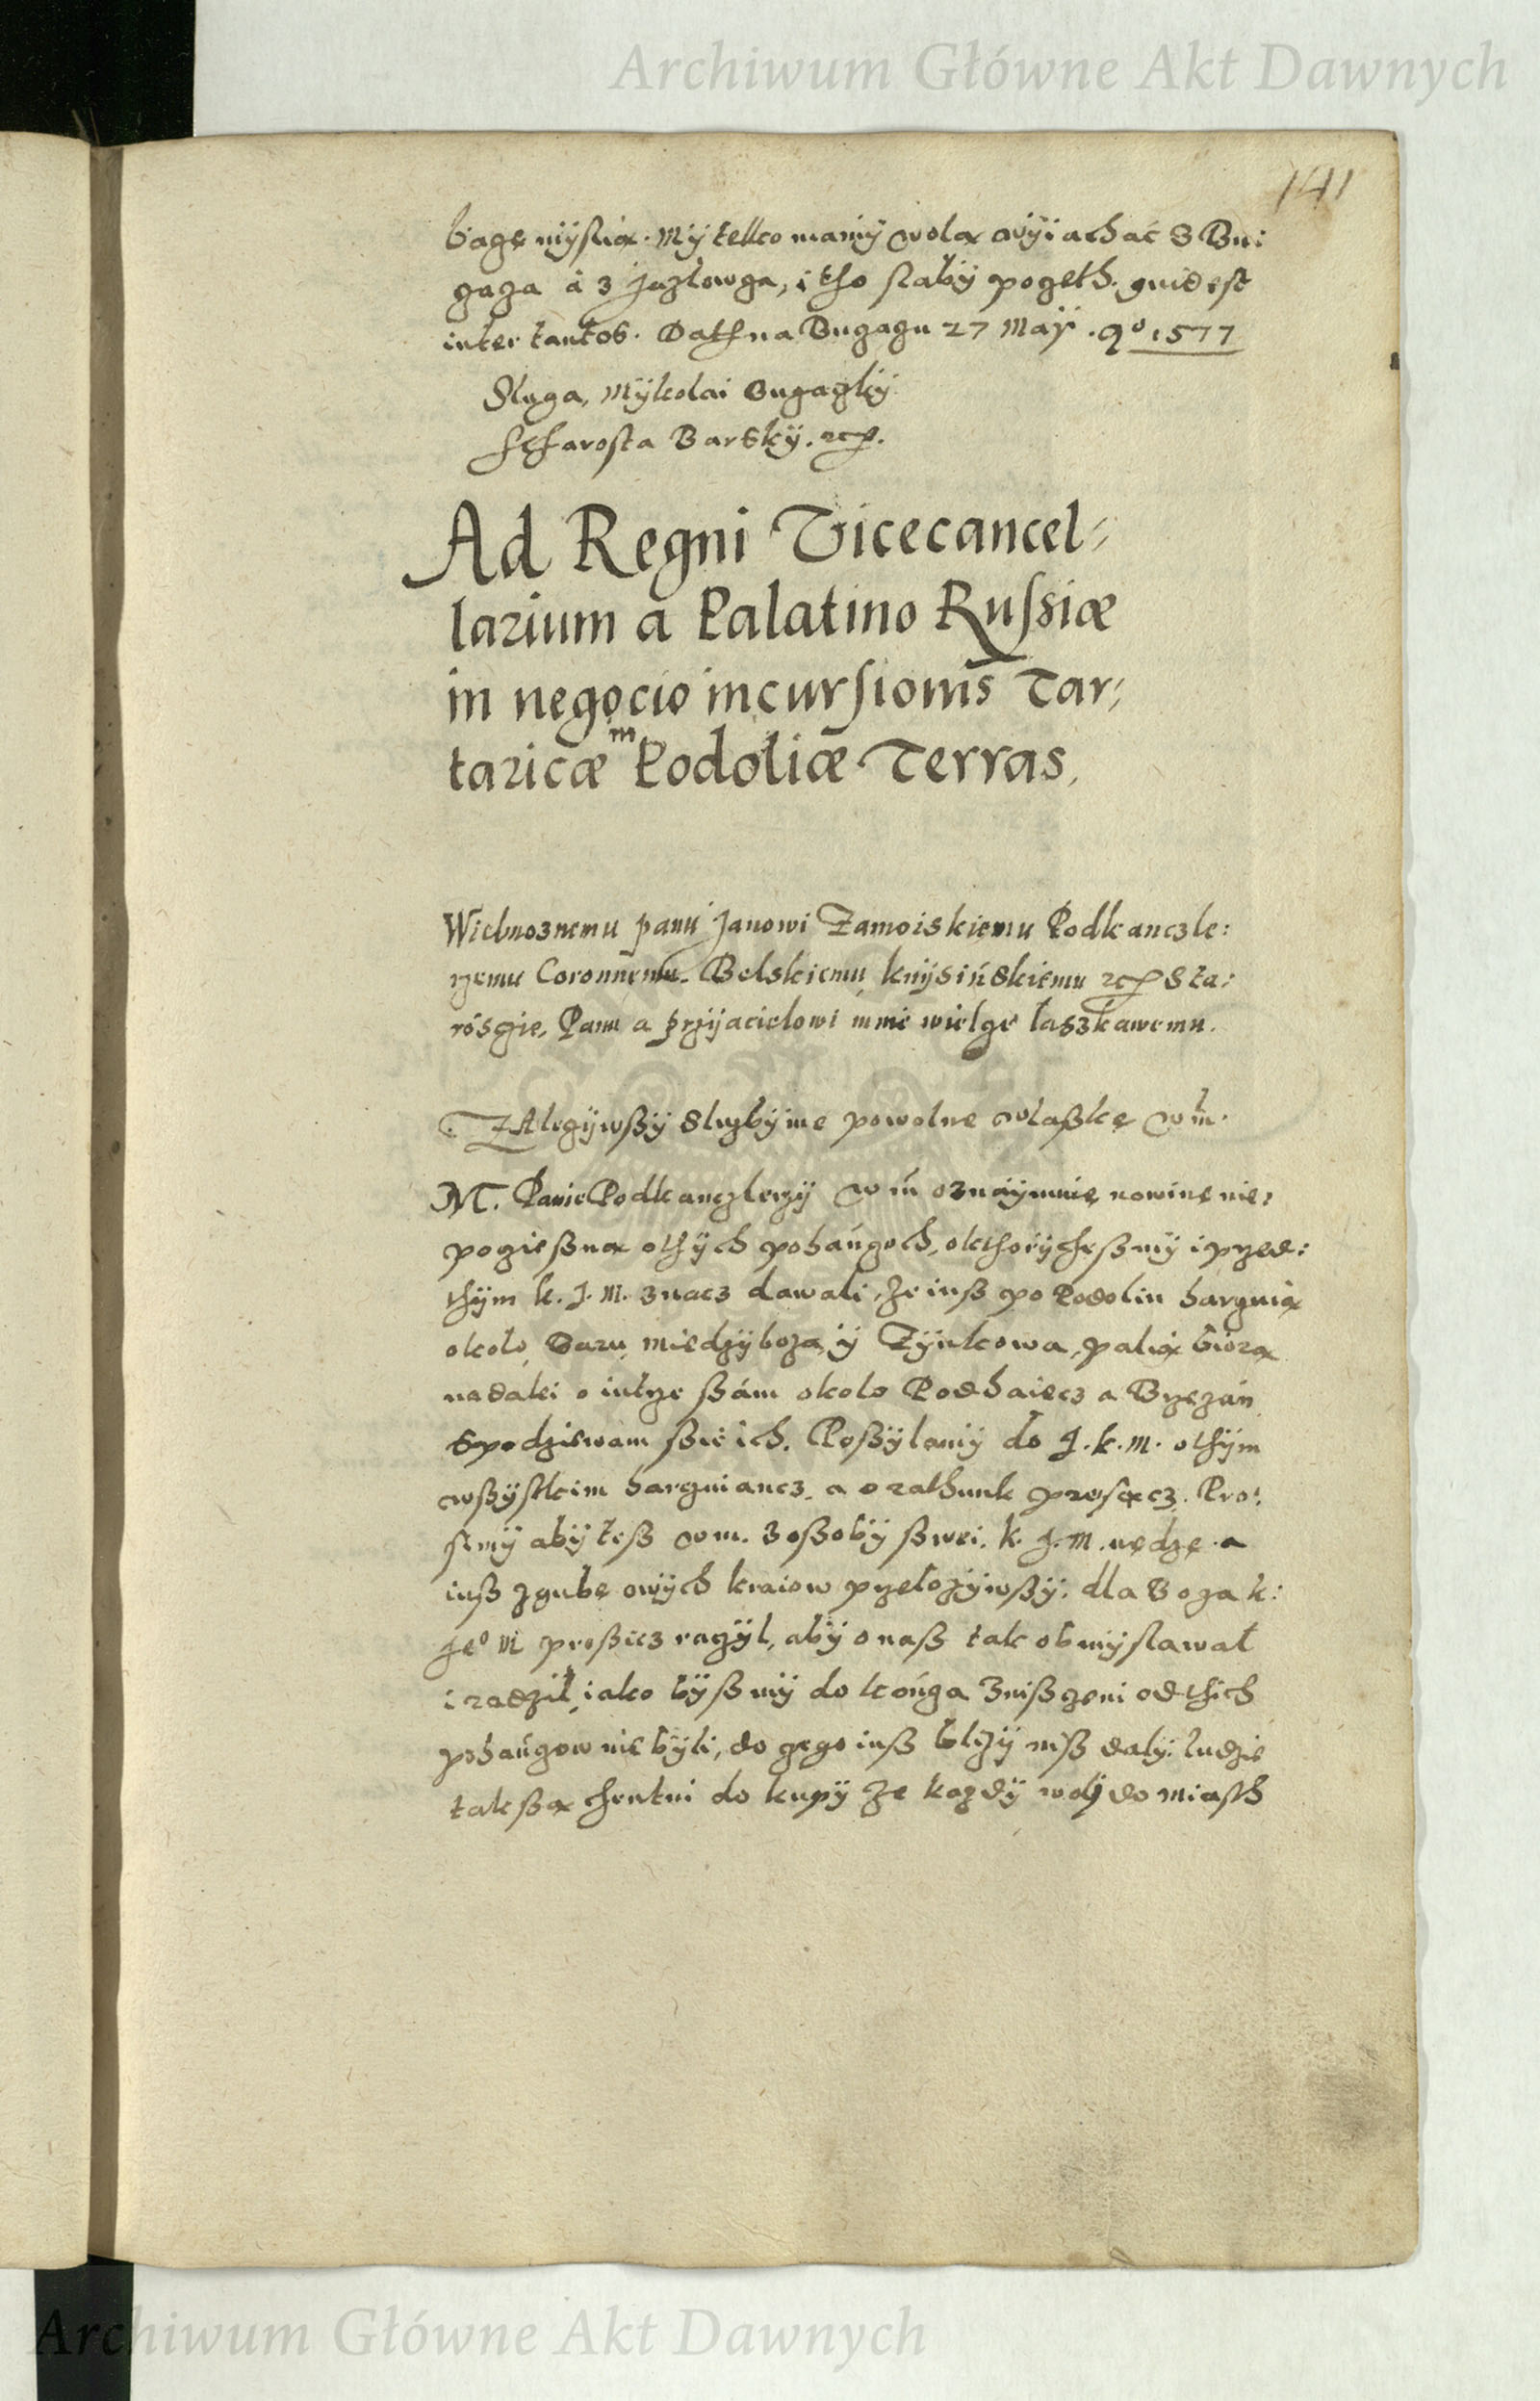 Archiwum Główne Akt Dawnych
141
bącę myslią. My telko mamy wolą wyiachać z Bu:
gaga á z Jazlowga, i tho slaby pogeth. quid est
inter tantos. Dath na Bugagu 27 Maÿ. aº 1577
Sluga, Mykolai Bugagky
Stharosta Barsky. etc.
Ad Regni Vicecancel=
larium a Palatino Russiæ
in negocio incursionis Tar=
taricæ in Podoliæ Terras.
Wielmoznemu panu Janowi Zamoiskiemu Podkanczle:
rzemu Coronnemu. Belskiemu, knysińskiemu etc Sta:
rosgie, Panu a przyiacielowi mnie wielge łaszkawemu.
ZAlegywßy sluzby me powolne w laßkę w m.
M. Panie Podkanczlerzy w m oznaymuię nowinę nie:
pogießną o thych pohańgoch, o kthorychesmy i przed:
thym k. J. M. znacz dawali, ze iuß po Podoliu harguią
okolo Baru, miedzyboza, y Zynkowa, palią biorą
na dalei o iutrze ßám okolo Podhaiecz a Brzezan
Spodziewam ßie ich. Poßylamy do J. k. m. o thym
wßystkim harguiancz, a o rathunk prosącz. Pro:
simy aby teß w m. z oßoby ßwei. k. J. M. nędzę a
iuß zgubę owych kraiow przelozywßy. dla Boga k:
Jeº M proßicz ragyl, aby o naß tak obmyslawał
i radził, iako byßmy do końga znißzeni od thich
pohańgow nie byli, do gego iuß blizy niß daly. ludzie
tak ßą chentni do kupy ze kazdy woly do miasth
Archiwum Główne Akt Dawnych